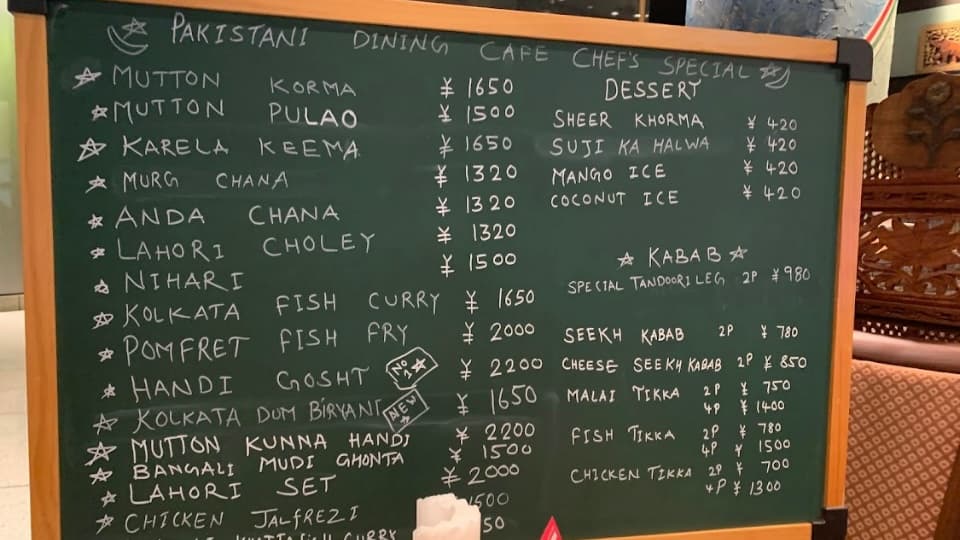 PAKISTANI DINING CAFE CHEF'S SPECIAL
MUTTON KORMA ¥ 1650
MUTTON PULAO ¥ 1500
KARELA KEEMA ¥ 1650
MURG CHANA ¥ 1320
ANDA CHANA ¥ 1320
LAHORI CHOLEY ¥ 1320
NIHARI ¥ 1500
KOLKATA FISH CURRY ¥ 1650
POMFRET FISH FRY ¥ 2000
HANDI GOSHT No 1 ¥ 2200
KOLKATA DUM BIRYANI NEW ¥ 1650
MUTTON KUNNA HANDI ¥ 2200
BANGALI MUDI GHONTA ¥ 1500
LAHORI SET ¥ 2000
CHICKEN JALFREZI 1500
CURRY 50
DESSERT
SHEER KHORMA ¥ 420
SUJI KA HALWA ¥ 420
MANGO ICE ¥ 420
COCONUT ICE ¥ 420
KABAB
SPECIAL TANDOORI LEG 2P ¥ 980
SEEKH KABAB 2P ¥ 780
CHEESE SEEKH KABAB 2P ¥ 850
MALAI TIKKA 2P ¥ 750
4P ¥ 1400
FISH TIKKA 2P ¥ 780
4P ¥ 1500
CHICKEN TIKKA 2P ¥ 700
4P ¥ 1300